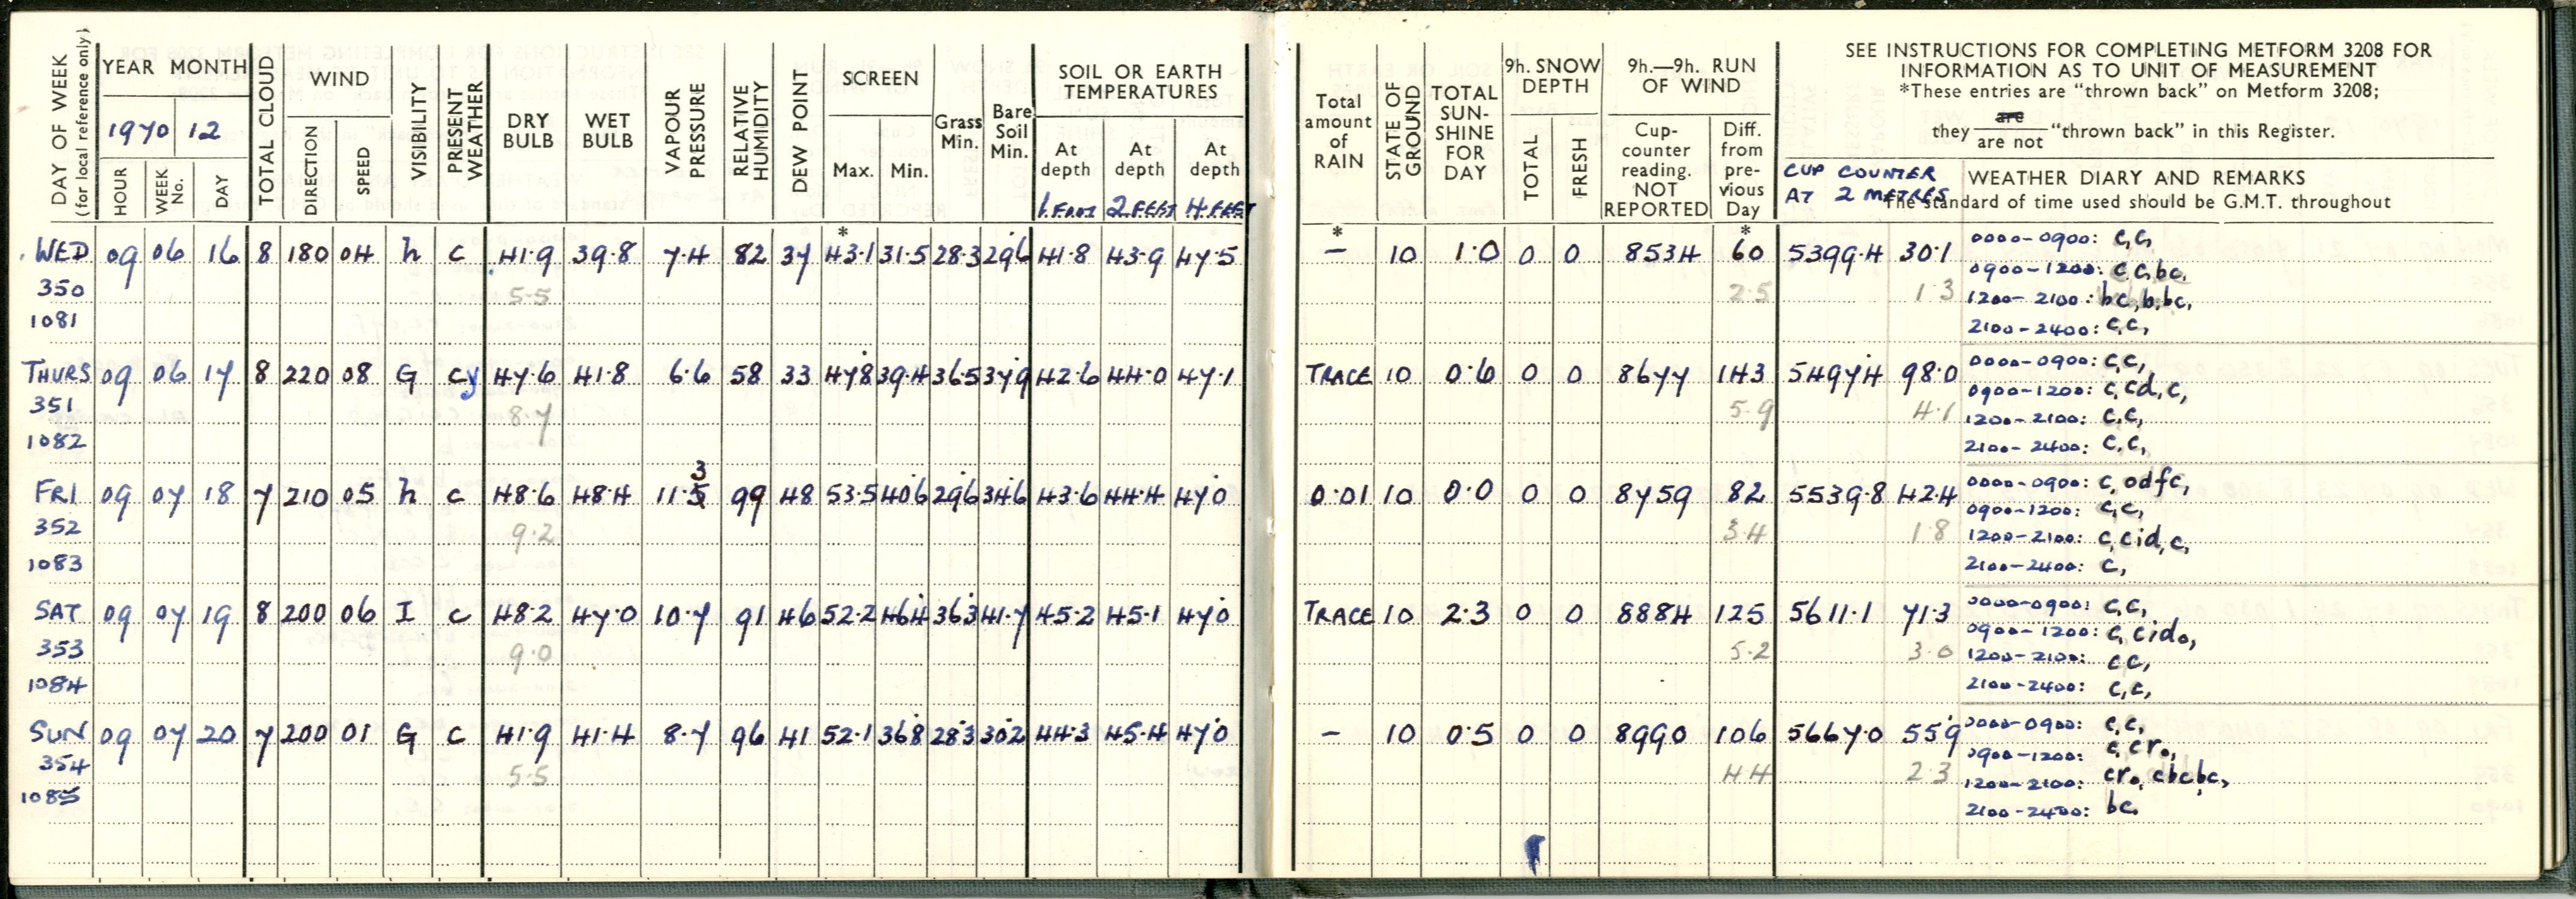 DAY OF WEEK
(for local reference only)
YEAR MONTH
1970 12
HOUR
WEEK No.
DAY
TOTAL CLOUD
WIND
DIRECTION
SPEED
VISIBILITY
PRESENT WEATHER
DRY BULB
WET BULB
VAPOUR PRESSURE
RELATIVE HUMIDITY
DEW POINT
SCREEN
Max.
Min.
Grass Min.
Bare Soil Min.
SOIL OR EARTH TEMPERATURES
At depth 1 FOOT
At depth 2 FEET
At depth 4 FEET
Total amount of RAIN
STATE OF GROUND
TOTAL SUN-SHINE FOR DAY
9h. SNOW DEPTH
TOTAL
FRESH
9h.—9h. RUN OF WIND
Cup-counter reading. NOT REPORTED
Diff. from pre-vious Day
SEE INSTRUCTIONS FOR COMPLETING METFORM 3208 FOR
INFORMATION AS TO UNIT OF MEASUREMENT
*These entries are "thrown back" on Metform 3208;
they are / are not "thrown back" in this Register.
CUP COUNTER
AT 2 METRES
WEATHER DIARY AND REMARKS
The standard of time used should be G.M.T. throughout
* * *
WED 09 06 16 8 180 04 h c 41.9 39.8 7.4 82 37 43.1 31.5 28.3 29.6 41.8 43.9 47.5 – 10 1.0 0 0 8534 60 5399.4 30.1 0000-0900: c,c,
350 5.5 2.5 1.3 0900-1200: c,c,bc,
1200-2100: bc,b,bc,
1081 2100-2400: c,c,
THURS 09 06 17 8 220 08 G cy 47.6 41.8 6.6 58 33 47.8 39.4 36.5 37.9 42.6 44.0 47.1 TRACE 10 0.6 0 0 8677 143 5497.4 98.0 0000-0900: c,c,
351 8.7 5.9 4.1 0900-1200: c,cd,c,
1200-2100: c,c,
1082 2100-2400: c,c,
FRI 09 07 18 7 210 05 h c 48.6 48.4 11.5 3 99 48 53.5 40.6 29.6 34.6 43.6 44.4 47.0 0.01 10 0.0 0 0 8759 82 5539.8 42.4 0000-0900: c,odfc,
352 9.2 3.4 1.8 0900-1200: c,c,
1200-2100: c,cid,c,
1083 2100-2400: c,
SAT 09 07 19 8 200 06 I c 48.2 47.0 10.7 91 46 52.2 46.4 36.3 41.7 45.2 45.1 47.0 TRACE 10 2.3 0 0 8884 125 5611.1 71.3 0000-0900: c,c,
353 9.0 5.2 3.0 0900-1200: c,cido,
1200-2100: c,c,
1084 2100-2400: c,c,
SUN 09 07 20 7 200 01 G c 41.9 41.4 8.7 96 41 52.1 36.8 28.3 30.2 44.3 45.4 47.0 – 10 0.5 0 0 8990 106 5667.0 55.9 0000-0900: c,c,
354 5.5 4.4 2.3 0900-1200: c,cro,
1200-2100: cro,cbcbc,
1085 2100-2400: bc,